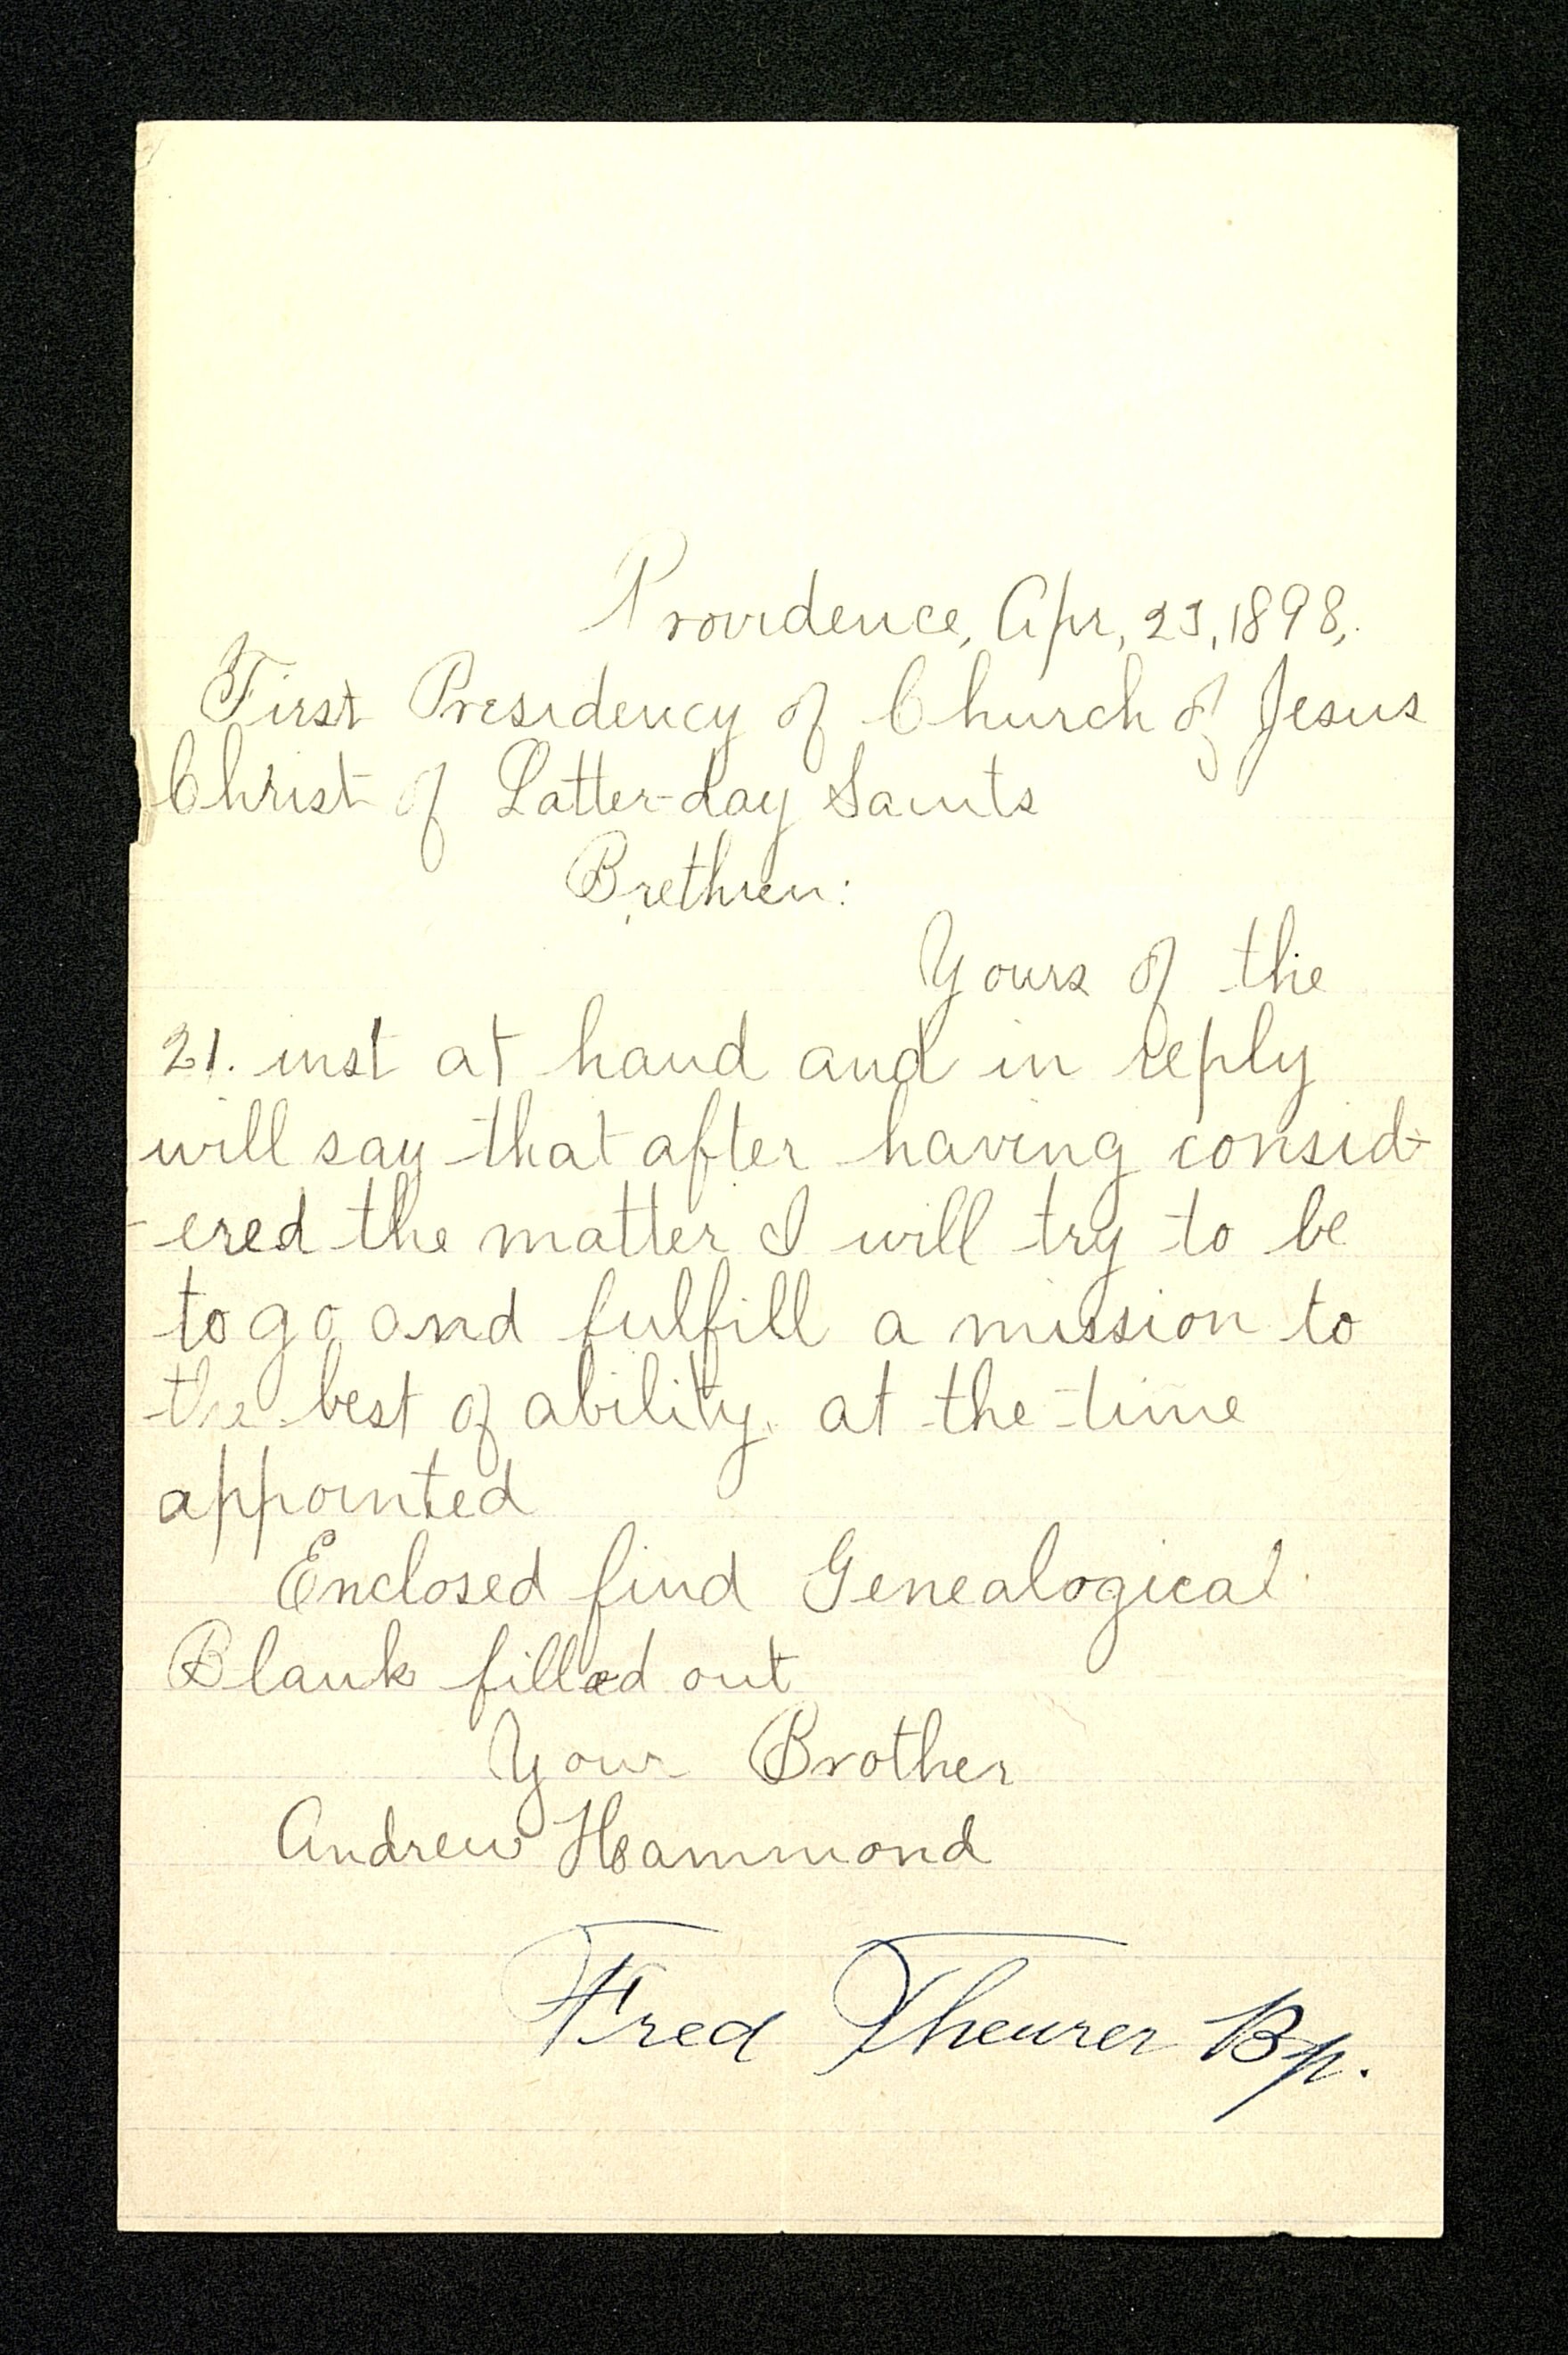 Providence, Apr, 23, 1898,.
First Presidency of Church of Jesus
Christ of Latter-day Saints
Brethren:
Yours of the
21. inst at hand and in reply
will say that after having consid-
-ered the matter I will try to be
to go and fulfill a mission to
the best of ability. at the time
appointed
Enclosed find Genealogical
Blank filled out
Your Brother
Andrew Hammond
Fred Theurer Bp.